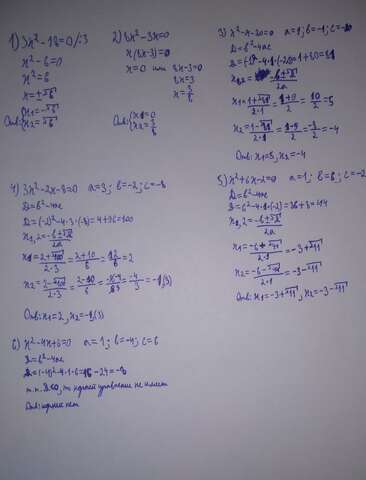 1) 3x²-18=0/:3
x²-6=0
x²=6
x=±√6
x1=-√6
Отв: x2=√6
2) 8x²-3x=0
x(8x-3)=0
x=0 или 8x-3=0
8x=3
x=3/8
Отв: x1=0
x2=3/8
3) x²-x-20=0 a=1; b=-1; c=-20
D=b²-4ac
D=(-1)²-4·1·(-20)=1+80=81
x1,2=-b±√D/2a
x1=1+√81/2·1=1+9/2=10/2=5
x2=1-√81/2·1=1-9/2=-8/2=-4
Отв: x1=5, x2=-4
4) 3x²-2x-8=0 a=3; b=-2; c=-8
D=b²-4ac
D=(-2)²-4·3·(-8)=4+96=100
x1,2=-b±√D/2a
x1=2+√100/2·3=2+10/6=12/6=2
x2=2-√100/2·3=2-10/6=-8/6=-4/3=-1,(3)
Отв: x1=2, x2=-1,(3)
5) x²+6x-2=0 a=1; b=6; c=-2
D=b²-4ac
D=6²-4·1·(-2)=36+8=44
x1,2=-b±√D/2a
x1=-6+√44/2·1=-3+√11
x2=-6-√44/2·1=-3-√11
Отв: x1=-3+√11, x2=-3-√11
6) x²-4x+6=0 a=1; b=-4; c=6
D=b²-4ac
D=(-4)²-4·1·6=16-24=-8
т.к. D<0, то корней уравнение не имеет
Отв: корней нет